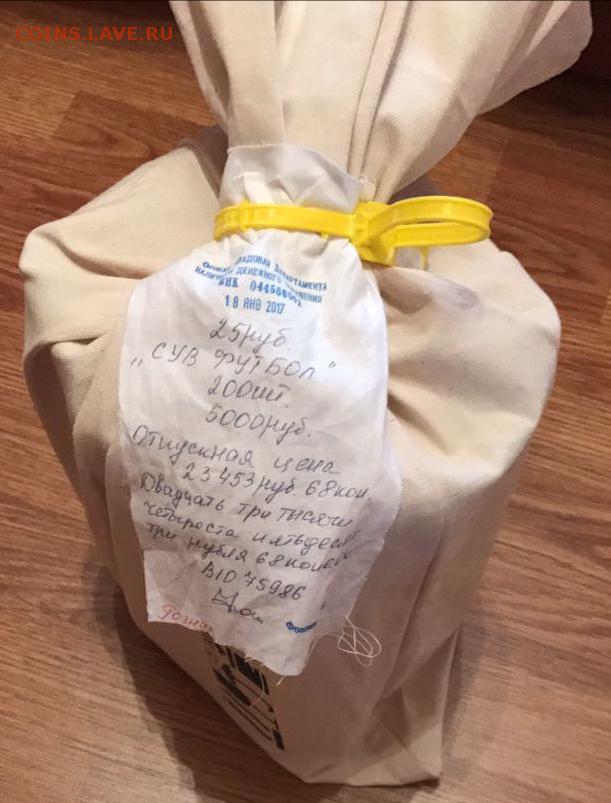 COINS.LAVE.RU
КЛАДОВАЯ ДЕПАРТАМЕНТА
НАЛИЧНО ДЕНЕЖНОГО ОБРАЩЕНИЯ
БИК
18 ЯНВ 2017
25 руб
„СУВ. ФУТБОЛ"
200шт.
5000руб.
Отпускная цена
23 453 руб. 68 коп.
Двадцать три тысячи
четыреста пятьдесят
три рубля 68 копеек
В10 75986